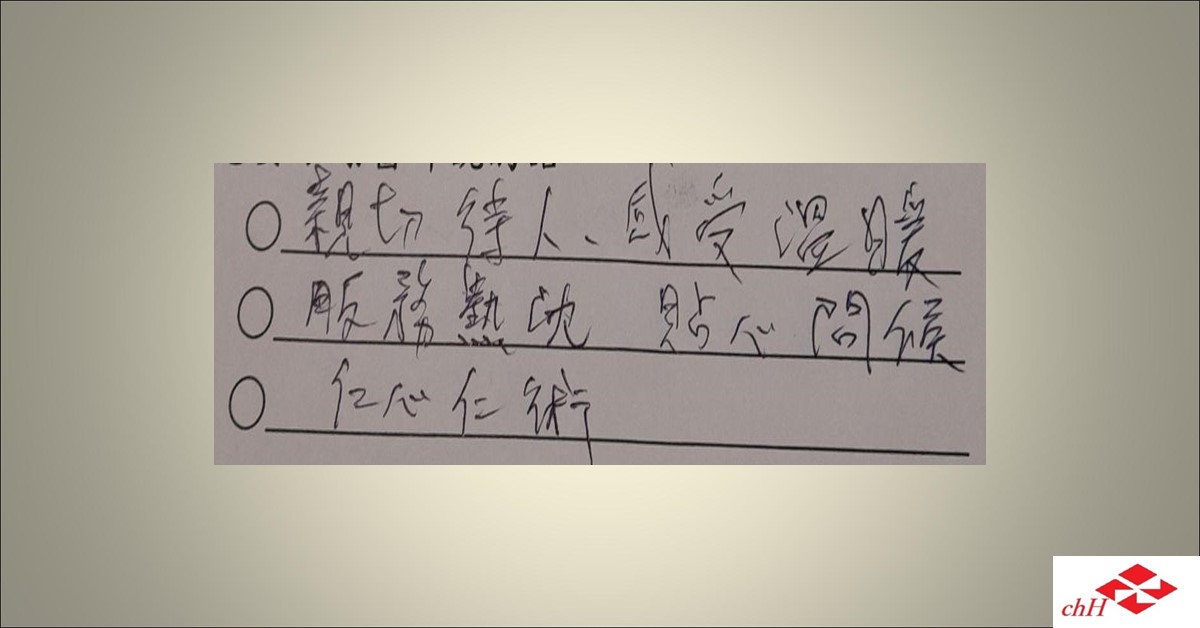 ○親切待人、感受溫暖
○服務熱忱 貼心問候
○仁心仁術
chH